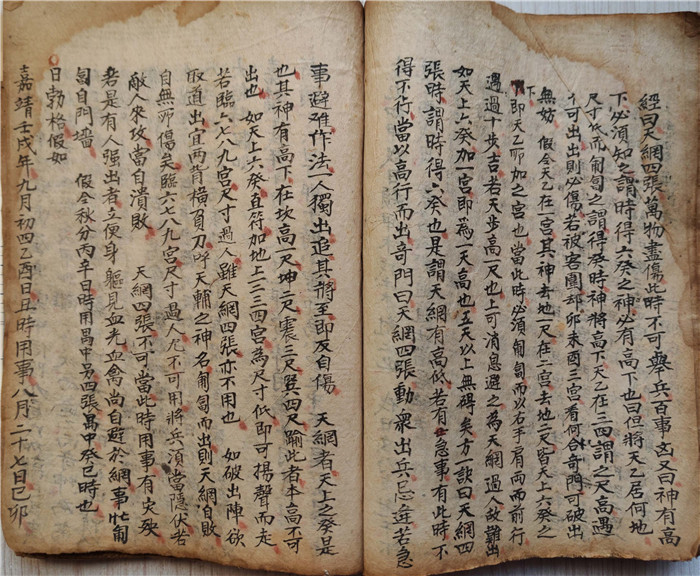 經曰天網四張萬物盡傷此時不可舉兵百事凶又曰神有高
下必須知之謂時得六癸之神必有高下也曰但將天乙居何地
尺寸低而匍匐之謂得癸時神將高下天乙在三四謂之尺高遇
不可出出則必傷若被客圍却卯未酉三宮看何合奇門可破出
無妨 假令天乙在一宮其神去地一尺在二宮去地二尺皆天上六癸之
下即天乙所加之宮也當此時必須匍匐而以右手肩兩而前行
遇過十步吉若天步高一尺也上可消息避之為天網過人故難出
如天上六癸加一宮即為一天高也五天以上無碍矣方一訣曰天網四
張時謂時得六癸也是謂天網有高低若有急事有此時不
得不行當以高行而出奇門曰天網四張動衆出兵忌逆若急
事避难作法人獨出追其將至即反自傷 天網者天上之癸是
也其神有高下在坎高一尺坤二尺震三尺巽四尺踰此者本高不可
出也 如天上六癸直符加地上一二三四宮為尺寸低即可揚聲而走
若臨六七八九宮尺寸過人雖天網四張亦不用也 如破出陣欲
取道出宜两背橫負刀呼天輔之神名匍匐而出則天網自敗
自無所傷矣臨六七八九宮尺寸過人尤不可用將兵須當隱伏若
敵人來攻當自潰敗 天網四張不可當此時用事有灾殃
若是有人强出者立便身軀見血光血禽尚自避於網事忙匍
匐自門墻 假令秋分丙午日時用禺中易四張禺中癸巳時也
日勃格假如
嘉靖壬戌年九月初四乙酉日丑時用事八月二十七日己卯